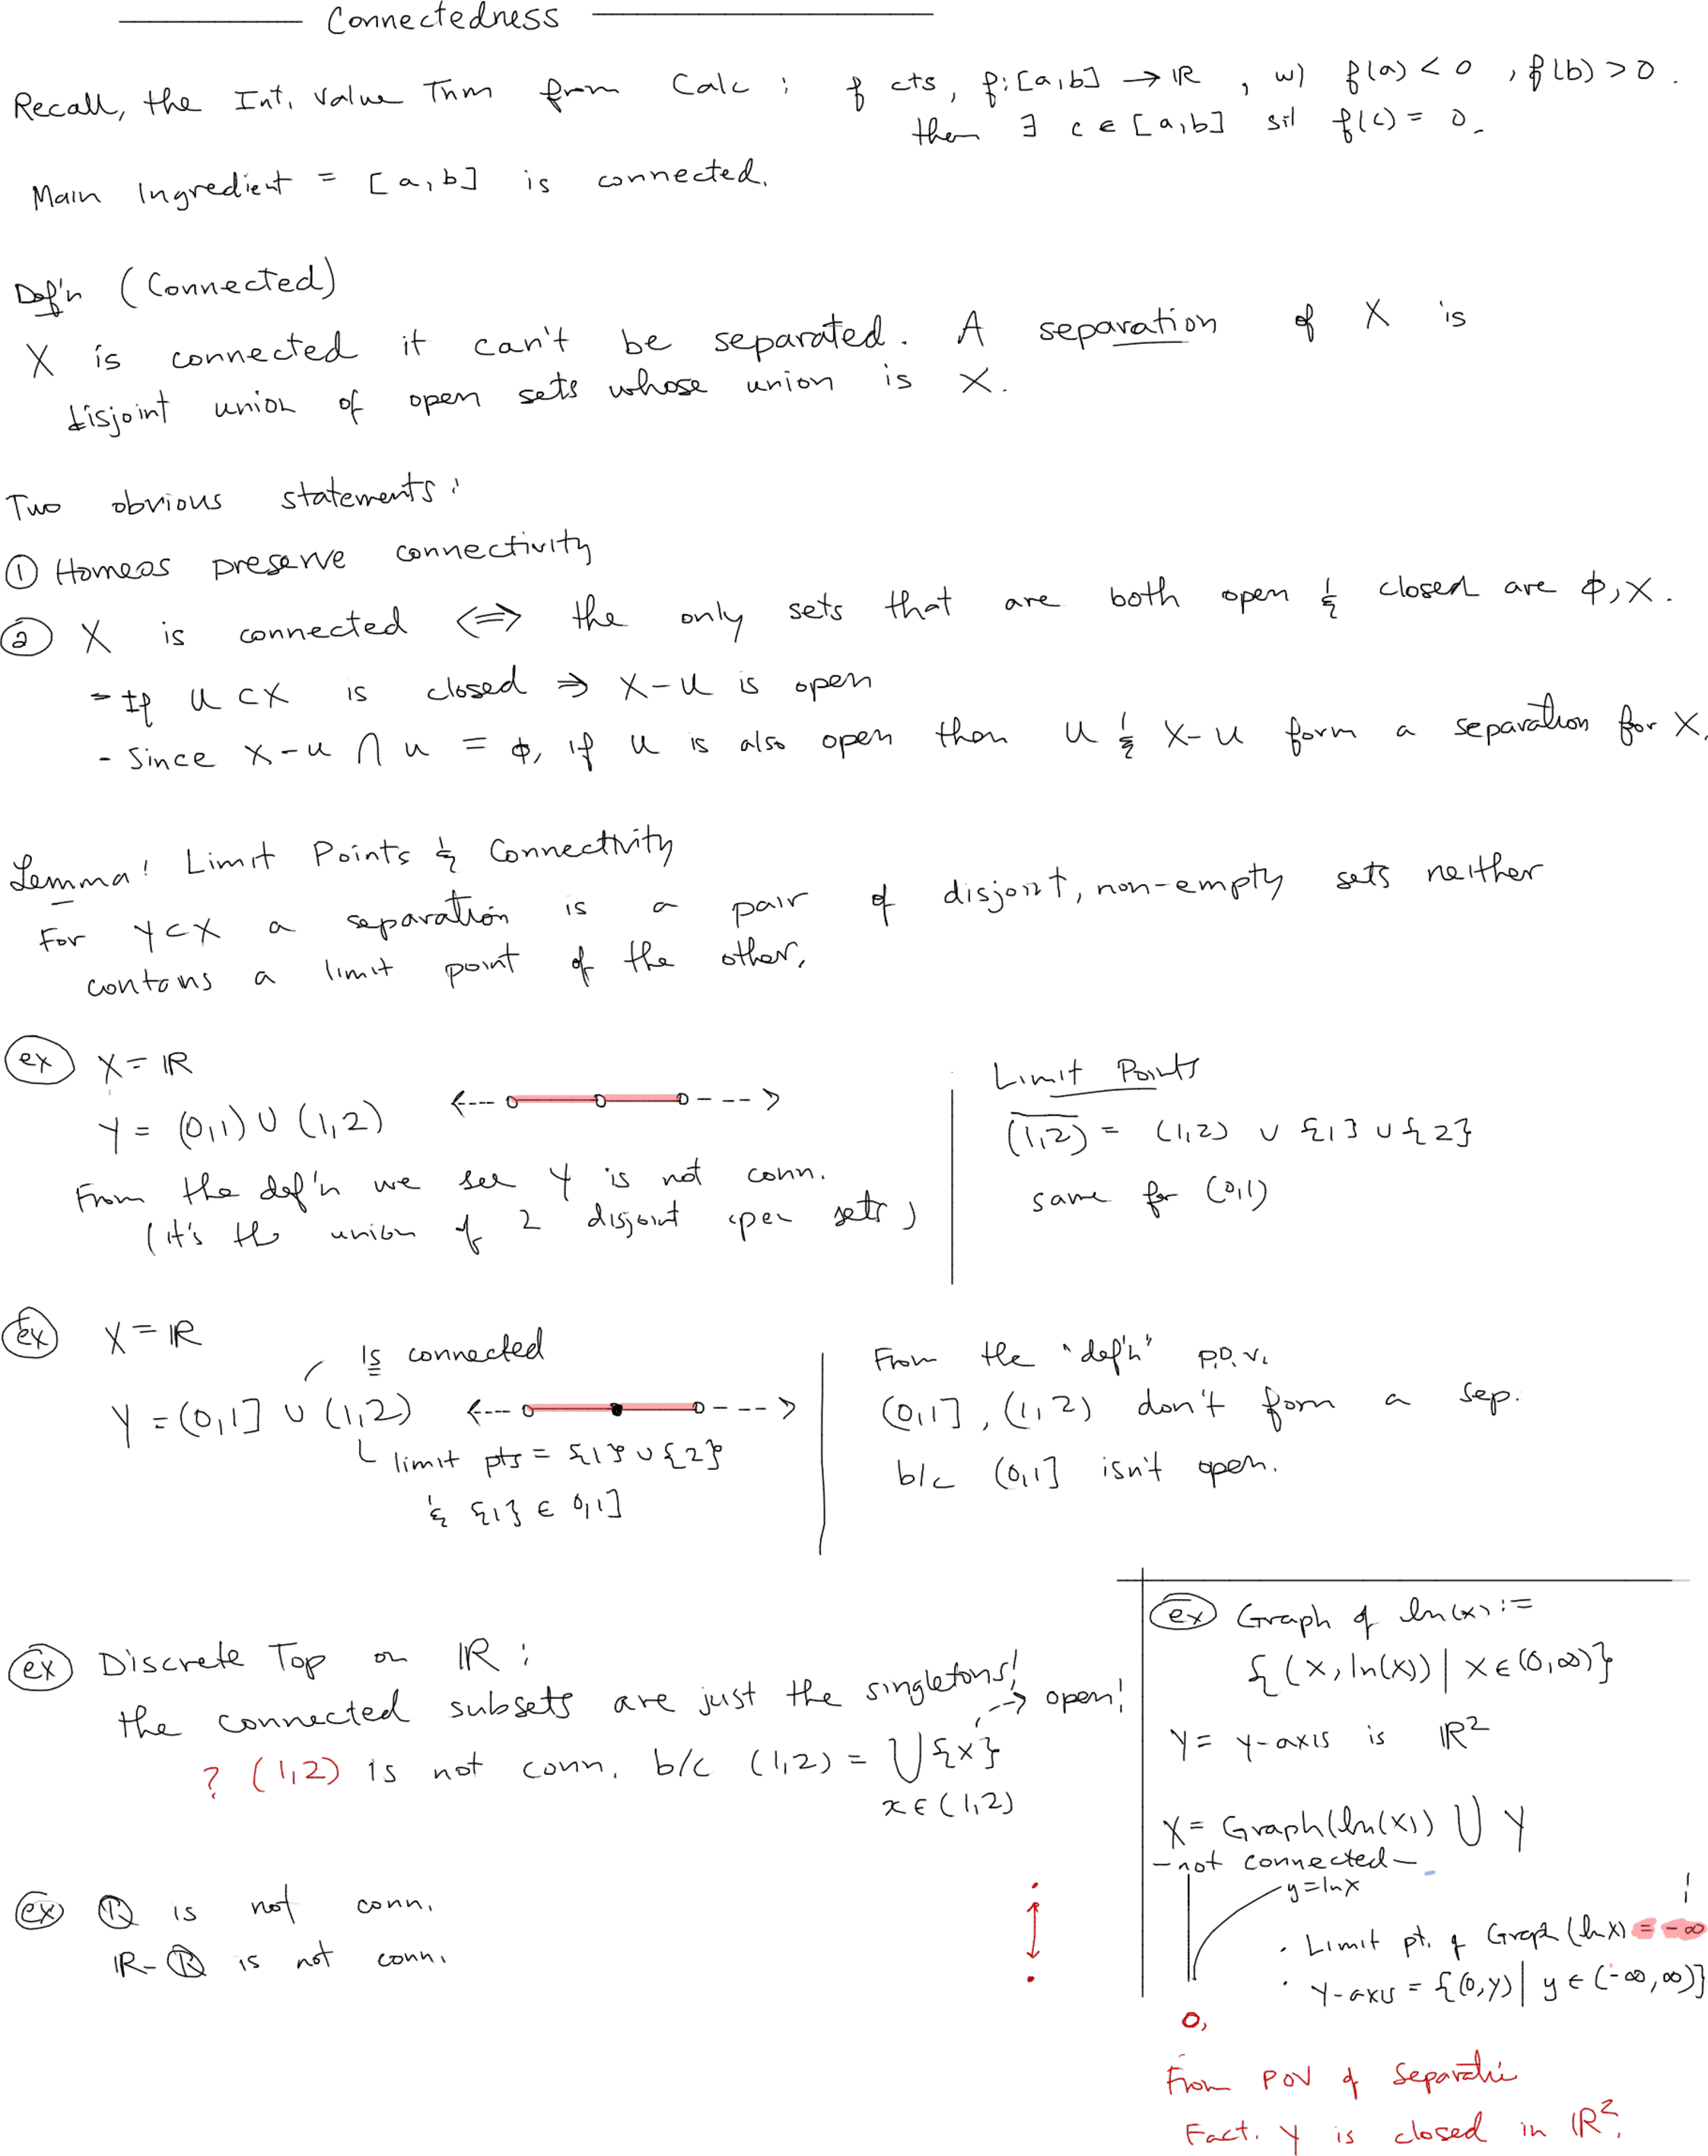 Connectedness
Recall, the Int. Value Thm from Calc : f cts, f:[a,b] → ℝ , w/ f(a) < 0 , f(b) > 0 .
then ∃ c ∈ [a,b] s.t f(c) = 0.
Main Ingredient = [a,b] is connected.
Def'n (Connected)
X is connected it can't be separated. A separation of X is
disjoint union of open sets whose union is X.
Two obvious statements:
① Homeos preserve connectivity
② X is connected ⟺ the only sets that are both open & closed are ∅, X.
- If U ⊂ X is closed ⇒ X-U is open
- Since X-U ∩ U = ∅, if U is also open then U & X-U form a separation for X.
Lemma: Limit Points & Connectivity
For Y⊂X a separation is a pair of disjoint, non-empty sets neither
contains a limit point of the other.
ex X = ℝ
Y = (0,1) ∪ (1,2)
From the def'n we see Y is not conn.
(it's the union of 2 disjoint open sets)
Limit Points
(1,2)‾ = (1,2) ∪ {1} ∪ {2}
same for (0,1)
Ex X = ℝ
Is connected
Y = (0,1] ∪ (1,2)
limit pts = {1} ∪ {2}
& {1} ∈ 0,1]
From the "def'n" p.o.v.
(0,1], (1,2) don't form a sep.
b/c (0,1] isn't open.
ex Discrete Top on ℝ :
the connected subsets are just the singletons!
→ open!
? (1,2) is not conn. b/c (1,2) = ⋃{x}
x ∈ (1,2)
ex ℚ is not conn.
ℝ-ℚ is not conn.
ex Graph of ln(x) :=
{(x, ln(x)) | x ∈ (0,∞)}
Y = y-axis is ℝ²
X = Graph(ln(x)) ∪ Y
- not connected -
y = ln x
· Limit pt. of Graph (ln x) = -∞
· Y-axis = {(0,y) | y ∈ (-∞,∞)}
0,
From POV of Separatin
Fact. Y is closed in ℝ².